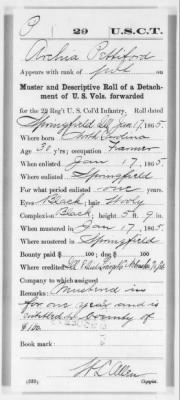 P 29 U.S.C.T.
Archia Pettiford
Appears with rank of Pvt on
Muster and Descriptive Roll of a Detach-
ment of U. S. Vols. forwarded
for the 29 Reg't U. S. Col'd Infantry. Roll dated
Springfield Ill Jan 17, 1865.
Where born North Carolina
Age 38 y'rs; occupation Farmer
When enlisted Jan 17, 1865.
Where enlisted Springfield
For what period enlisted one years.
Eyes Black; hair Wooly
Complexion Black; height 5 ft. 9 in.
When mustered in Jan 17, 1865.
Where mustered in Springfield
Bounty paid $ 100; due $ 100
Where credited
Company to which assigned
Remarks: Mustered in
for one year and is
entitled to bounty of
$100.
Book mark:
Copyist.